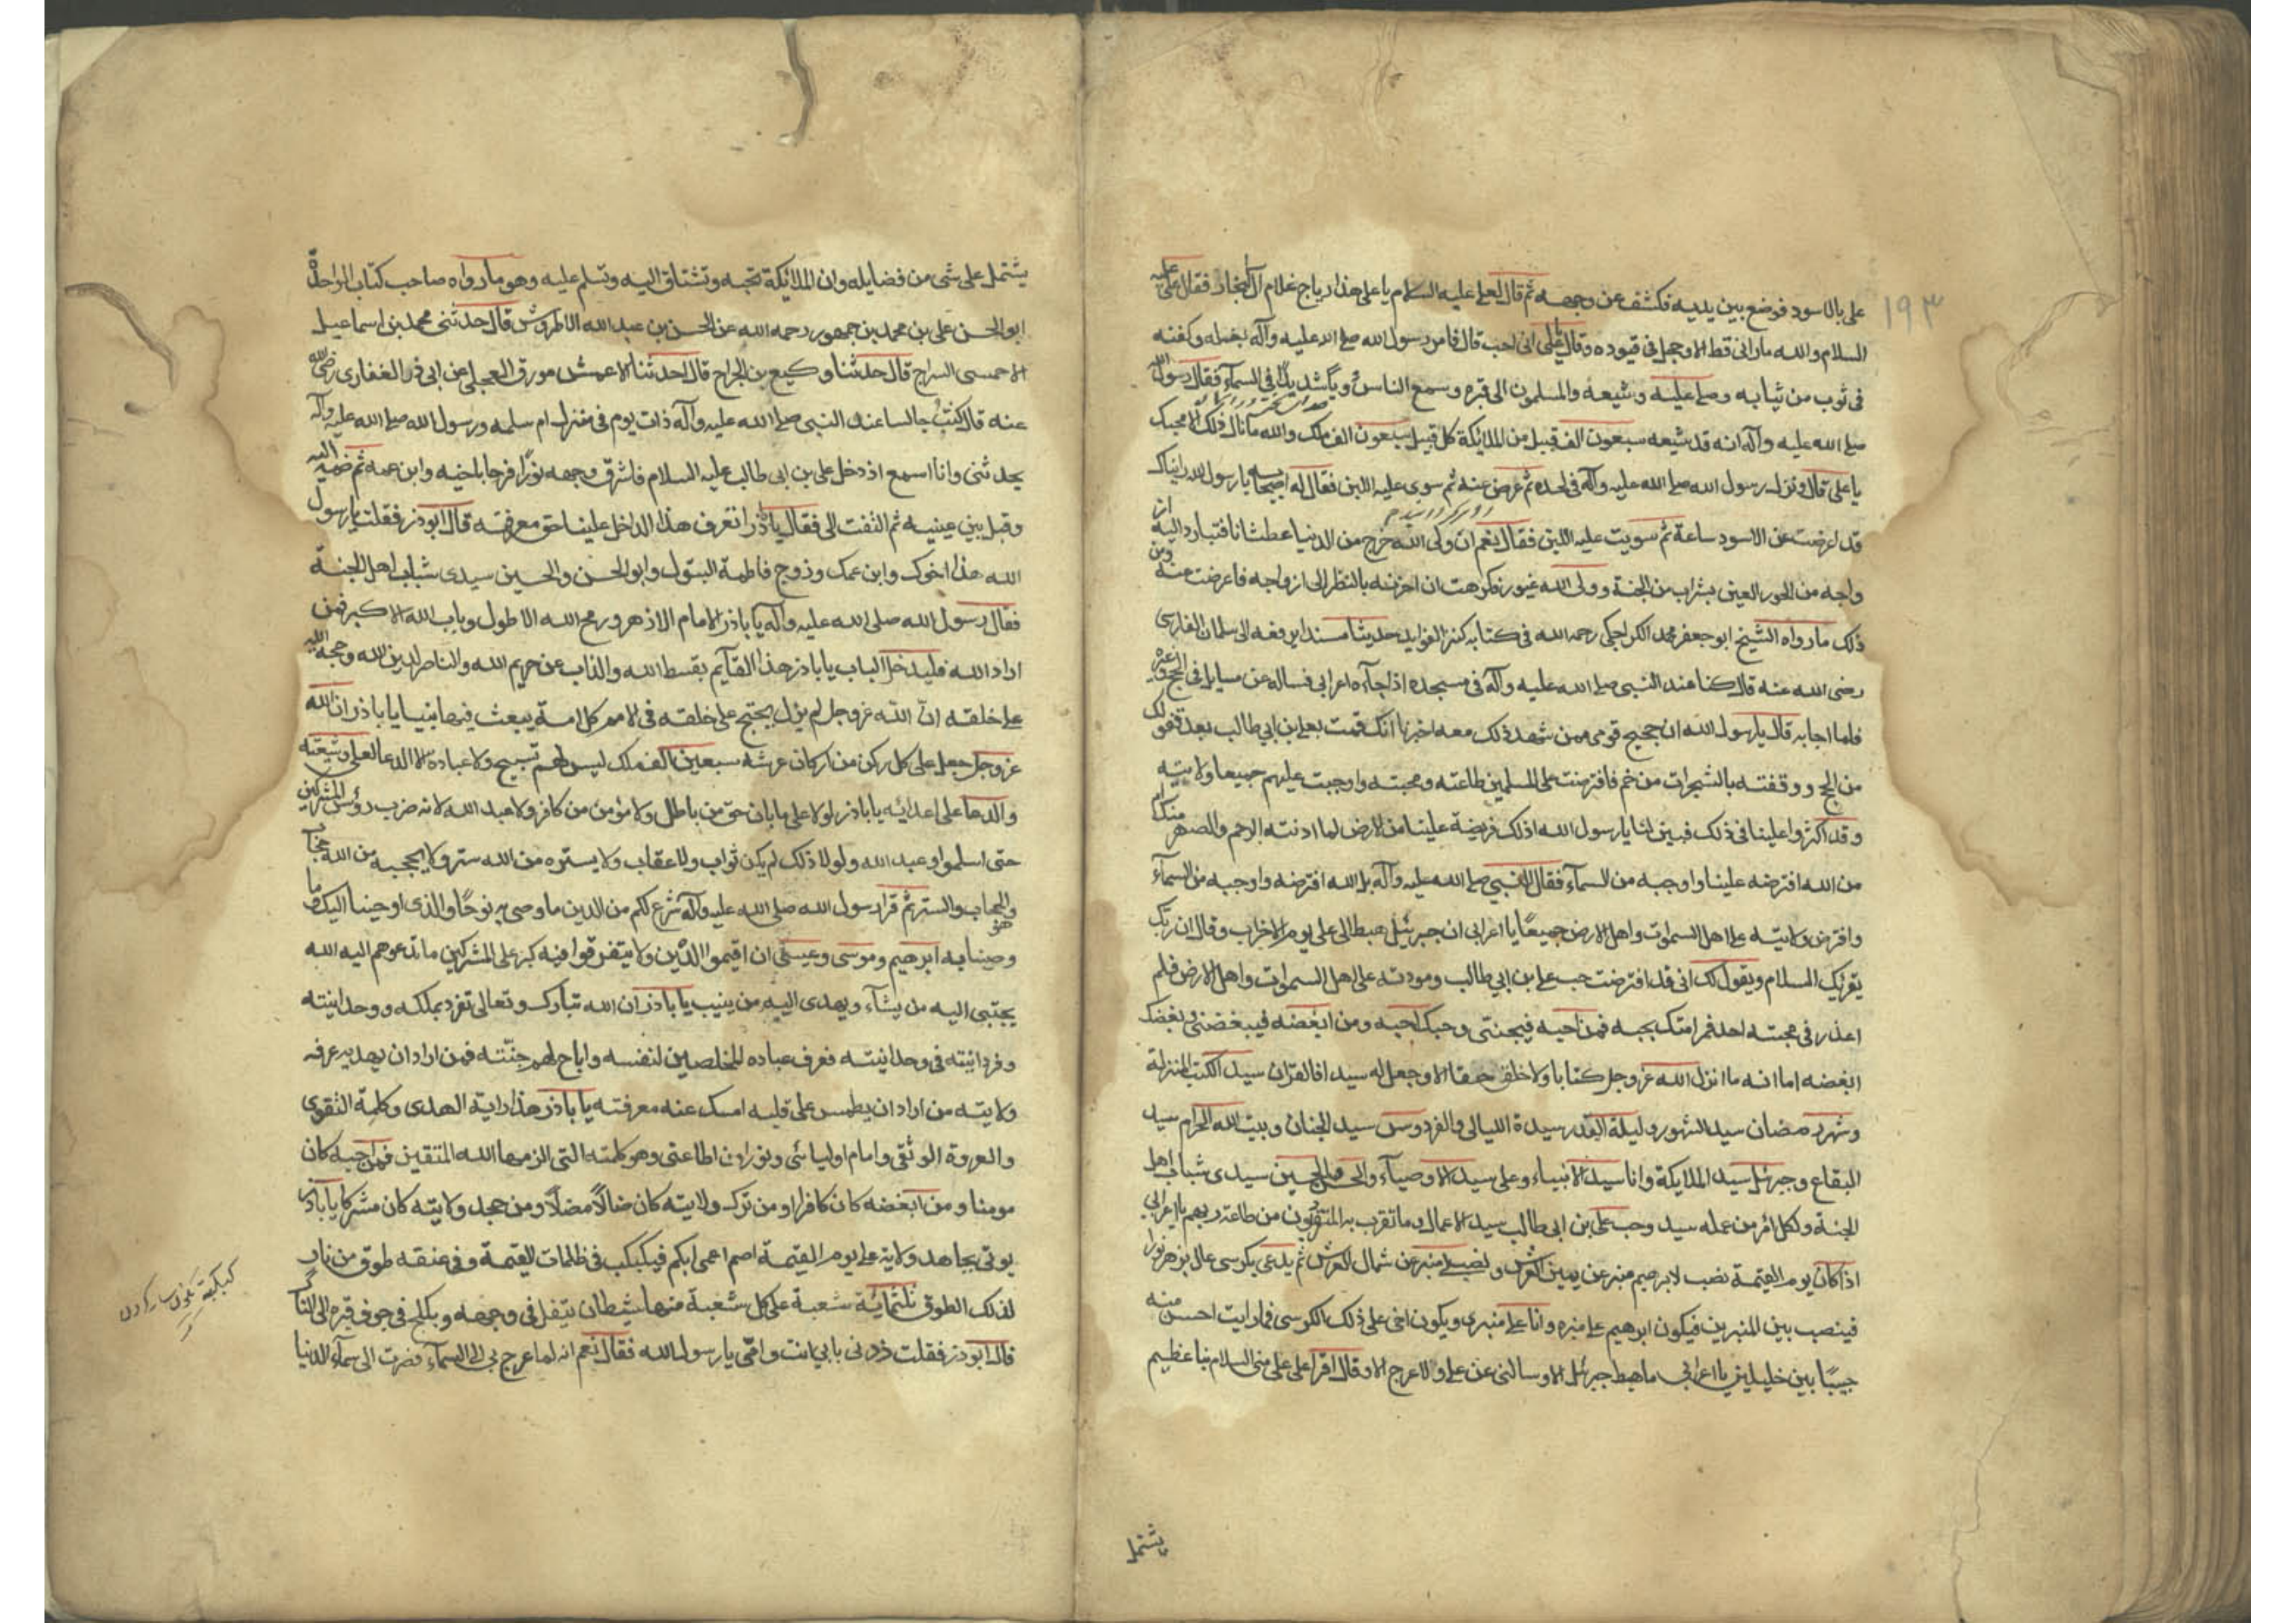 ۱۹۳
على بالاسود فوضع بين يديه فكشف عن وجهه ثم قال لعلى عليه السلام يا على هذا رياح غلام آل النجار فقال على عليه
السلام والله ما رانى قط الا وحجل فى قيوده وقال يا على انى احب قال فامر رسول الله صلى الله عليه وآله بغسله وكفنه
فى ثوب من ثيابه وصلى عليه وشيعه والمسلمون الى قبره وسمع الناس دويا شديدا فى السماء فقال رسول الله
صلى الله عليه وآله انه قد شيعه سبعون الف قبيل من الملائكة كل قبيل سبعون الف ملك والله ما نال ذلك الا بحبك
يا على قال ونزل رسول الله صلى الله عليه وآله فى لحده ثم عرض عنه ثم سوى عليه اللبن فقال له اصحابه يا رسول الله رايناك
قد اعرضت عن الاسود ساعة ثم سويت عليه اللبن فقال نعم ان ولى الله خرج من الدنيا عطشانا فتبادر اليه از
واجه من الحور العين بشراب من الجنة وولى الله غيور فكرهت ان احزنه بالنظر الى ازواجه فاعرضت عنه ومن
ذلك ما رواه الشيخ ابو جعفر محمد الكراجكى رحمه الله فى كتابه كنز الفوايد حديثا مسندا يرفعه الى سلمان الفارسى
رضى الله عنه قال كنا عند النبى صلى الله عليه وآله فى مسجده اذ جاءه اعرابى فساله عن مسايل فى الحج وغيره
فلما اجابه قال يا رسول الله ان حجيج قومى ممن شهد ذلك معه اخبرنا انك قمت بعلى ابن ابي طالب بعد قفولك
من الحج ووقفته بالشجرات من خم فافترضت على المسلمين طاعته ومحبته واوجبت عليهم جميعا ولايته
وقد اكثروا علينا فى ذلك فبين لنا يا رسول الله اذلك فريضة علينا من الارض لما ادنته الرحم والصهر منك ام
من الله افترضه علينا واوجبه من السماء فقال النبى صلى الله عليه وآله بل الله افترضه واوجبه من السماء
وافترض ولايته على اهل السموات واهل الارض جميعا يا اعرابى ان جبرئيل هبط الى على يوم الاحزاب وقال ان ربك
يقرئك السلام ويقول لك انى قد افترضت حب على بن ابي طالب ومودته على اهل السموات واهل الارض فلم
اعذر فى محبته احد فمر امتك بحبه فمن احبه فبحبى وحبك احبه ومن ابغضه فببغضى وبغضك
ابغضه اما انه ما انزل الله عز وجل كتابا ولا خلق خلقا الا وجعل له سيدا فالقران سيد الكتب المنزلة
وشهر رمضان سيد الشهور وليلة القدر سيدة الليالى والفردوس سيد الجنان وبيت الله الحرام سيد
البقاع وجبرئيل سيد الملايكة وانا سيد الانبياء وعلى سيد الاوصياء والحسن والحسين سيدى شباب اهل
الجنة ولكل امر من عمله سيد وحب على بن ابى طالب سيد الاعمال وما تقرب به المتقربون من طاعة ربهم يا اعرابى
اذا كان يوم القيمة نصب لابرهيم منبر عن يمين العرش ونصب لى منبر عن شمال العرش ثم يدعى بكرسى عال يزهر نورا
فينصب بين المنبرين فيكون ابرهيم على منبره وانا على منبرى ويكون اخى على ذلك الكرسى فما رايت احسن منه
حبيبا بين خليلين يا اعرابى ما هبط جبرئيل الا وسالنى عن على ولا عرج الا وقال اقرا على على منى السلام نبا عظيم
يشتمل
يشتمل على شى من فضايله وان الملائكة تحبه وتشتاق اليه وتسلم عليه وهو ما رواه صاحب كتاب الواحدة
ابو الحسن على بن محمد بن جمهور رحمه الله عن الحسن بن عبد الله الاطروش قال حدثنى محمد بن اسماعيل
الاحمسى السراج قال حدثنا وكيع بن الجراح قال حدثنا الاعمش مورق العجلى عن ابى ذر الغفارى رضى الله
عنه قال كنت جالسا عند النبى صلى الله عليه وآله ذات يوم فى منزل ام سلمه ورسول الله صلى الله عليه وآله
يحدثنى وانا اسمع اذ دخل على بن ابى طالب عليه السلام فاشرق وجهه نورا فرحا باخيه وابن عمه ثم ضمه اليه
وقبل بين عينيه ثم التفت الى فقال يا باذر اتعرف هذا الداخل علينا حق معرفته قال ابو ذر فقلت يا رسول
الله هذا اخوك وابن عمك وزوج فاطمة البتول وابو الحسن والحسين سيدى شباب اهل الجنة
فقال رسول الله صلى الله عليه وآله يا باذر الامام الازهر ورمح الله الاطول وباب الله الاكبر فمن
اراد الله فليدخل الباب يا باذر هذا القآيم بقسط الله والذاب عن حريم الله والناصر لدين الله وحجة الله
على خلقه ان الله عز وجل لم يزل يحتج على خلقه فى الامم كل امة يبعث فيها نبيا يا باذر ان الله
عز وجل جعل على كل ركن من اركان عرشه سبعين الف ملك ليس لهم تسبيح ولا عبادة الا الدعا لعلى وشيعته
والدعا على اعدائه يا باذر لولا على ما بان حق من باطل ولا مؤمن من كافر ولا عبد الله لانه ضرب رؤس المشركين
حتى اسلموا وعبد الله ولولا ذلك لم يكن ثواب ولا عقاب ولا يستره من الله ستر ولا يحجبه من الله حجاب
وهو الحجاب والستر ثم قرا رسول الله صلى الله عليه وآله شرع لكم من الدين ما وصى به نوحا والذى اوحينا اليك وما
وصينا به ابرهيم وموسى وعيسى ان اقيموا الدين ولا تتفرقوا فيه كبر على المشركين ما تدعوهم اليه الله
يجتبى اليه من يشآء ويهدى اليه من ينيب يا باذر ان الله تبارك وتعالى تفرد بملكه ووحدانيته
وفردانيته فى وحدانيته فعرف عباده المخلصين لنفسه واباح لهم جنته فمن اراد ان يهديه عرفه
ولايته من اراد ان يطمس على قلبه امسك عنه معرفته يا باذر هذا راية الهدى وكلمة التقوى
والعروة الوثقى وامام اوليائى ونور من اطاعنى وهو كلمته التى الزمها الله المتقين فمن احبه كان
مومنا ومن ابغضه كان كافرا ومن ترك ولايته كان ضالا مضلا ومن جحد ولايته كان مشركا يا باذر
يوتى بجاحد ولاية على يوم القيمة اصم اعمى ابكم فيكبكب فى ظلمات القيمة وفى عنقه طوق من نار
لذلك الطوق ثلثمائة شعبة على كل شعبة منها شيطان يتفل فى وجهه ويكلح فى جوف قبره الى النار
قال ابو ذر فقلت زدنى بابى انت وامى يا رسول الله فقال نعم انه لما عرج بى الى السمآء فصرت الى سمآء الدنيا